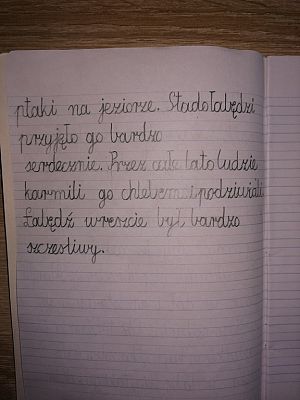 ptaki na jeziorze. Stado łabędzi
przyjęło go bardzo
serdecznie. Przez całe lato ludzie
karmili go chlebem i podziwiali.
Łabędź wreszcie był bardzo
szczęśliwy.